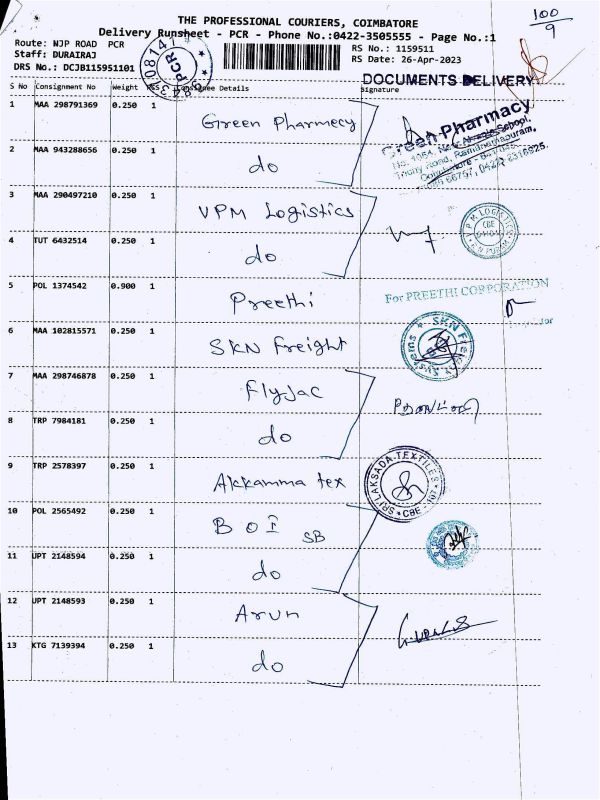 100
9
THE PROFESSIONAL COURIERS, COIMBATORE
Delivery Runsheet - PCR - Phone No.:0422-3505555 - Page No.:1
Route: NJP ROAD PCR
Staff: DURAIRAJ
DRS No.: DCJB115951101
RS No.: 1159511
RS Date: 26-Apr-2023
PCR
DOCUMENTS DELIVERY
S No Consignment No Weight Details Signature
1 MAA 298791369 0.250 1 Green Pharmecy
Green Pharmacy
2 MAA 943288656 0.250 1 do
3 MAA 290497210 0.250 1 VPM Logistics
VPM LOGISTICS
CBE
4 TUT 6432514 0.250 1 do
5 POL 1374542 0.900 1 Preethi
For PREETHI CORPORATION
6 MAA 102815571 0.250 1 SKN Freight
SKN Freight Systems
7 MAA 298746878 0.250 1 Flyjac
8 TRP 7984181 0.250 1 do
9 TRP 2578397 0.250 1 Akkamma tex
SRI LAKSADA TEXTILES
CBE
10 POL 2565492 0.250 1 BOI SB
11 UPT 2148594 0.250 1 do
12 UPT 2148593 0.250 1 Arun
13 KTG 7139394 0.250 1 do